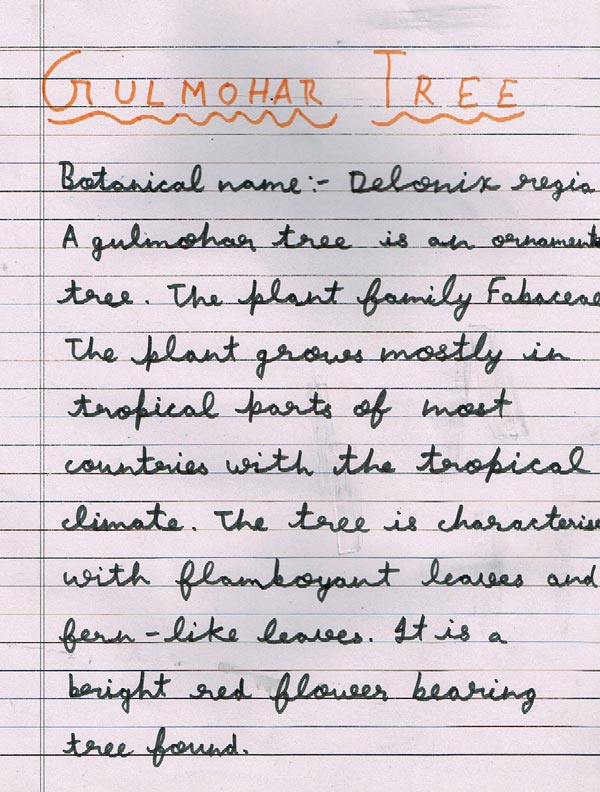 GULMOHAR TREE
Botanical name:- Delonix regia
A gulmohar tree is an ornamenta
tree. The plant family Fabaceae
The plant grows mostly in
tropical parts of most
countries with the tropical
climate. The tree is characterise
with flamboyant leaves and
fern-like leaves. It is a
bright red flower bearing
tree found.